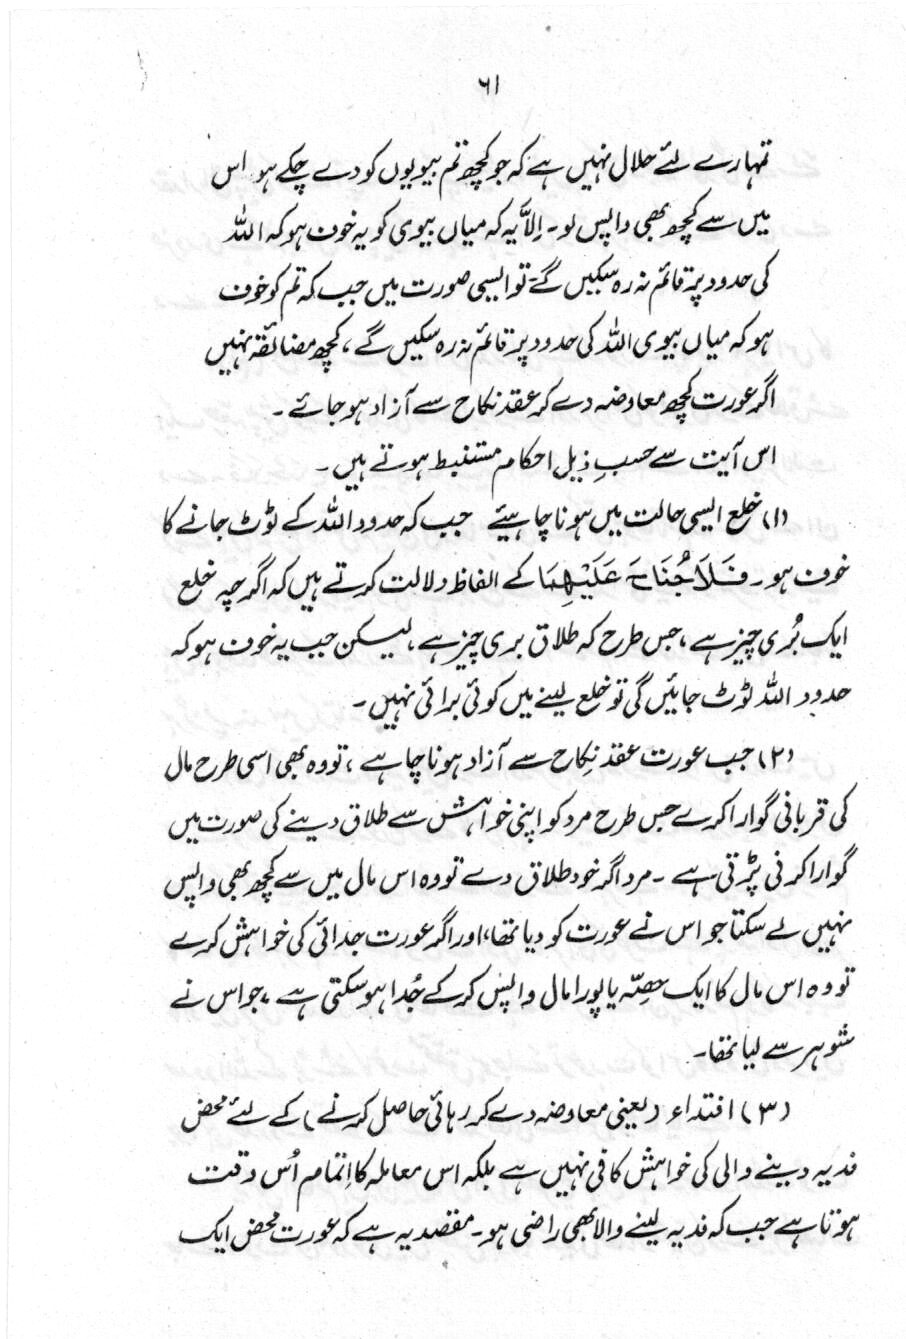 ۶۱
تمہارے لئے حلال نہیں ہے کہ جو کچھ تم بیویوں کو دے چکے ہو اس
میں سے کچھ بھی واپس لو۔ اِلّا یہ کہ میاں بیوی کو یہ خوف ہو کہ اللہ
کی حدود پر قائم نہ رہ سکیں گے۔ تو ایسی صورت میں جب کہ تم کو خوف
ہو کہ میاں بیوی اللہ کی حدود پر قائم نہ رہ سکیں گے، کچھ مضائقہ نہیں
اگر عورت کچھ معاوضہ دے کر عقد نکاح سے آزاد ہو جائے۔
اس آیت سے حسبِ ذیل احکام مستنبط ہوتے ہیں۔
(۱) خلع ایسی حالت میں ہونا چاہیئے جب کہ حدود اللہ کے ٹوٹ جانے کا
خوف ہو۔ فَلَا جُنَاحَ عَلَيْهِمَا کے الفاظ دلالت کرتے ہیں کہ اگرچہ خلع
ایک بُری چیز ہے، جس طرح کہ طلاق بری چیز ہے، لیکن جب یہ خوف ہو کہ
حدود اللہ ٹوٹ جائیں گی تو خلع لینے میں کوئی برائی نہیں۔
(۲) جب عورت عقد نکاح سے آزاد ہونا چاہے، تو وہ بھی اسی طرح مال
کی قربانی گوارا کرے جس طرح مرد کو اپنی خواہش سے طلاق دینے کی صورت میں
گوارا کرنی پڑتی ہے۔ مرد اگر خود طلاق دے تو وہ اس مال میں سے کچھ بھی واپس
نہیں لے سکتا جو اس نے عورت کو دیا تھا، اور اگر عورت جدائی کی خواہش کرے
تو وہ اس مال کا ایک حصّہ یا پورا مال واپس کر کے جُدا ہو سکتی ہے، جو اس نے
شوہر سے لیا تھا۔
(۳) افتداء (یعنی معاوضہ دے کر رہائی حاصل کرنے) کے لئے محض
فدیہ دینے والی کی خواہش کافی نہیں ہے بلکہ اس معاملہ کا اِتمام اُس وقت
ہوتا ہے جب کہ فدیہ لینے والا بھی راضی ہو۔ مقصد یہ ہے کہ عورت محض ایک